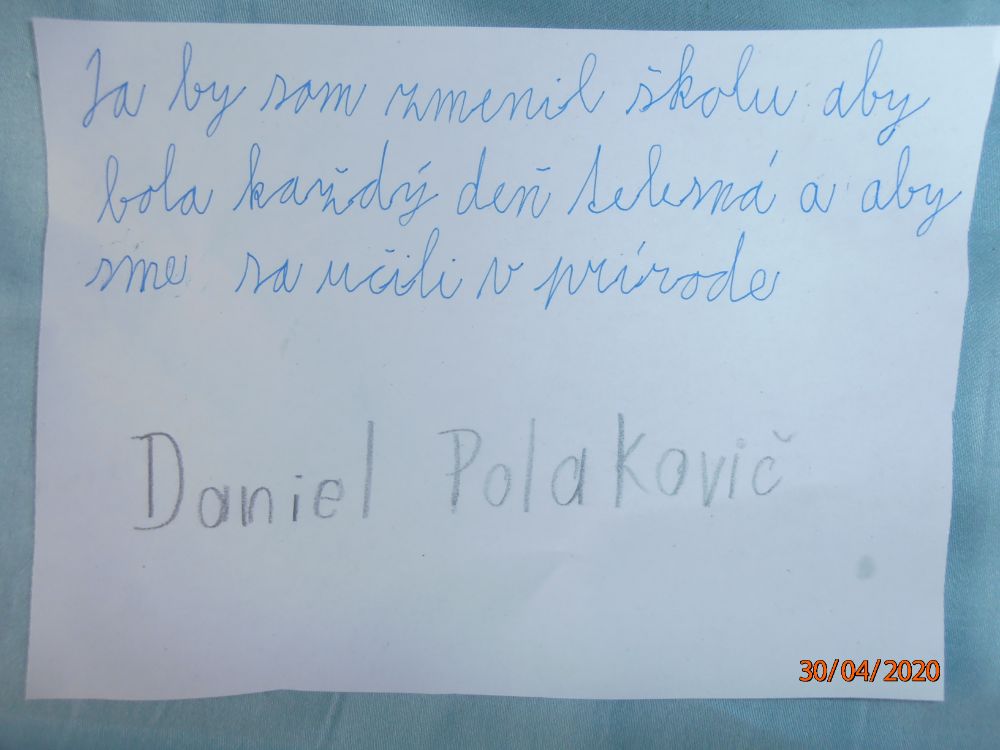 Ja by som zmenil školu aby
bola každý deň telesná a aby
sme sa učili v prírode
Daniel Polakovič
30/04/2020